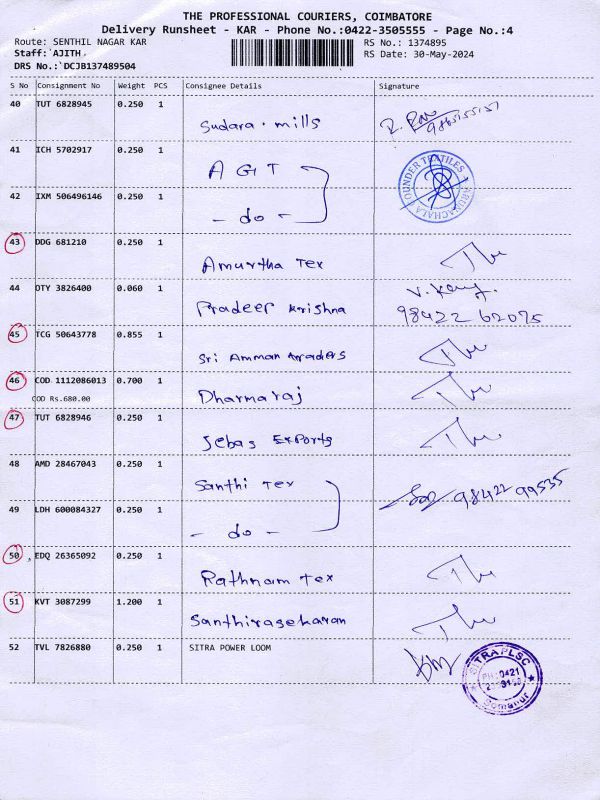 THE PROFESSIONAL COURIERS, COIMBATORE
Delivery Runsheet - KAR - Phone No.:0422-3505555 - Page No.:4
Route: SENTHIL NAGAR KAR RS No.: 1374895
Staff: AJITH RS Date: 30-May-2024
DRS No.: DCJB137489504
S No Consignment No Weight PCS Consignee Details Signature
40 TUT 6828945 0.250 1 Sudara . mills
41 ICH 5702917 0.250 1 A G T
42 IXM 506496146 0.250 1 - do -
FOUNDER TEXTILES
ARUNACHALA
43 DDG 681210 0.250 1 Amurtha Tex
44 OTY 3826400 0.060 1 Pradeep Krishna 98422 62075
45 TCG 50643778 0.855 1 Sri Amman traders
46 COD 1112086013 0.700 1 Dharmaraj
COD Rs.680.00
47 TUT 6828946 0.250 1 Jebas Exports
48 AMD 28467043 0.250 1 Santhi Tex 98422 99535
49 LDH 600084327 0.250 1 - do -
50 EDQ 26365092 0.250 1 Rathnam Tex
51 KVT 3087299 1.200 1 Santhirasekaran
52 TVL 7826880 0.250 1 SITRA POWER LOOM
SITRA PLSC
Somanur